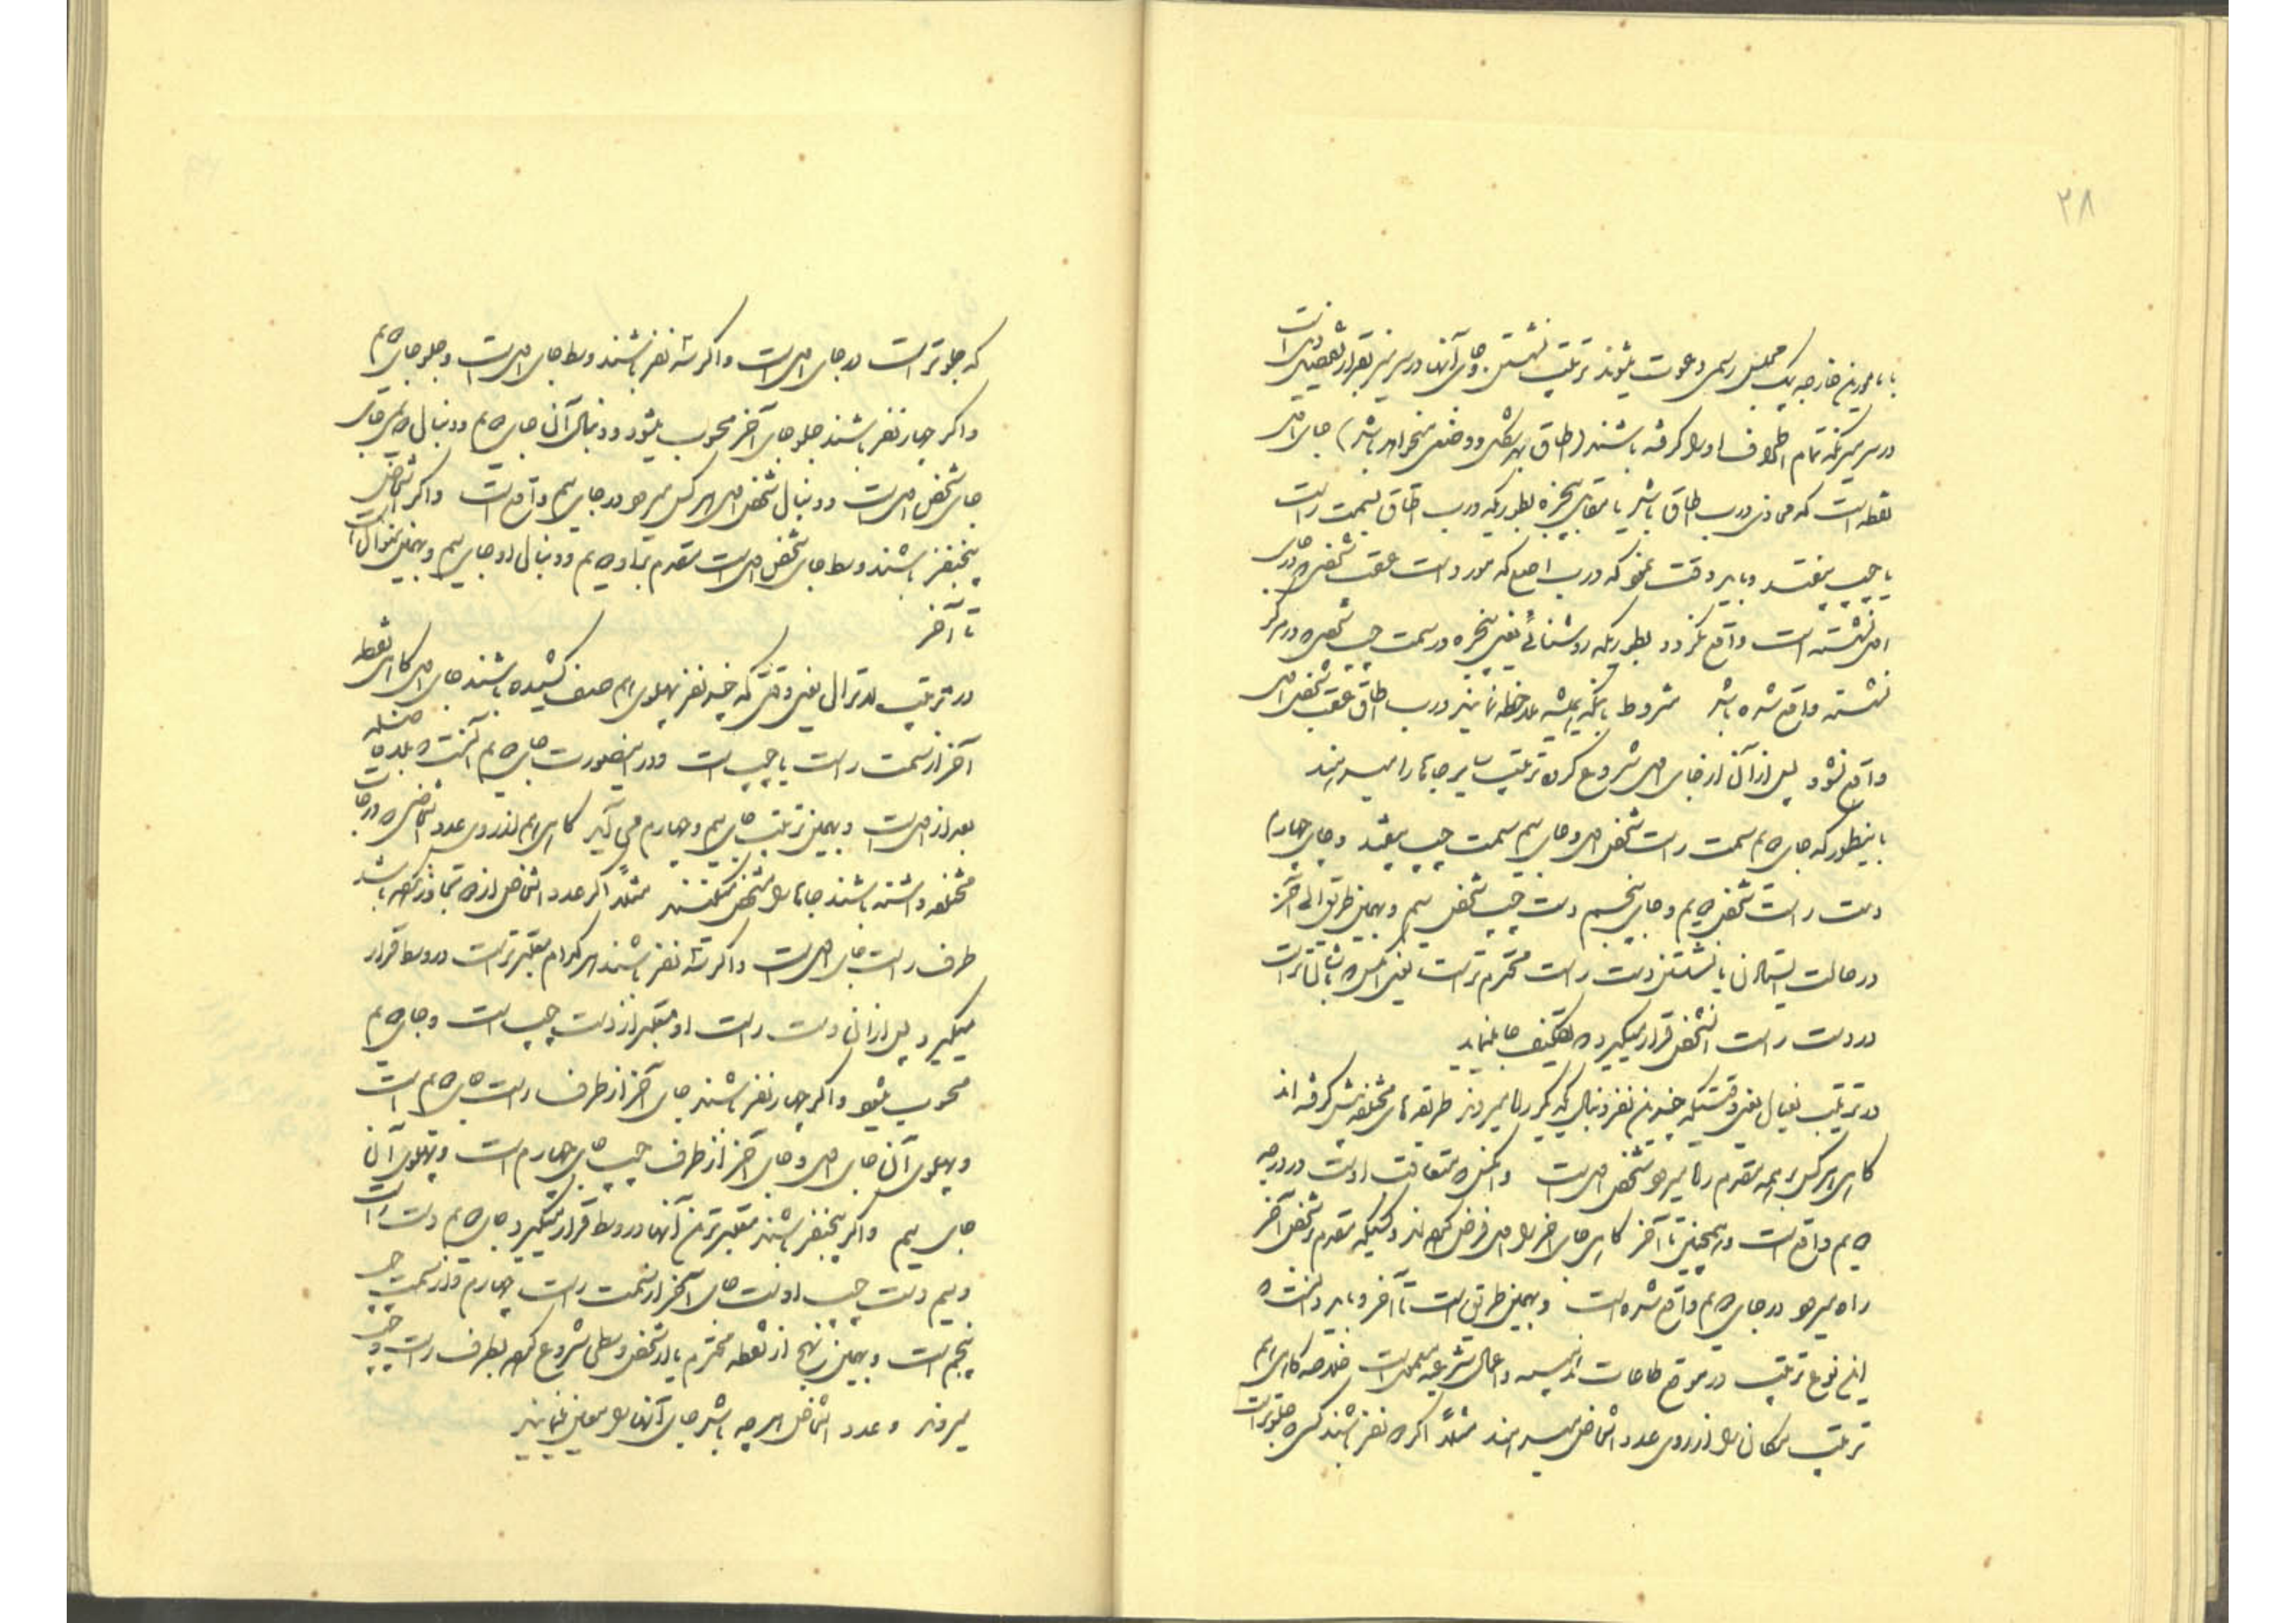 ۲۸
با مامورین خارجه بیک مجلس رسمی دعوت میشوند ترتیب نشستن و جای آنها در سر میز بقرار تفصیل ذیل است
در سر میزیکه تمام اطراف او را گرفته باشند (اطاق بهر شکل و وضعی میخواهد باشد) جای اول
نقطه ایست که محاذی درب اطاق باشد یا مقابل پنجره بطوریکه درب اطاق بسمت راست
یا چپ بیفتد و باید دقت نمود که درب اصلی که مورد است عقب شخصی که در جای
اول نشسته است واقع نگردد بطوریکه روشنائی یعنی پنجره در سمت چپ شخصی که در مرکز
نشسته واقع شده باشد مشروط باینکه همیشه ملاحظه نمایند درب اطاق عقب شخص اول
واقع نشود پس از آن از جای اول شروع کرده ترتیب سایر جاها را میدهند
باینطور که جای دویم سمت راست شخص اول و جای سیم سمت چپ میافتد و جای چهارم
دست راست شخص دویم و جای پنجم دست چپ شخص سیم و بهمین طریق الی آخر
در حالت ایستادن یا نشستن دست راست محترم تر است یعنی آنکس که با شان تر است
در دست راست آن شخص قرار میگیرد که تکلیف جا مینماید
در ترتیب نفیال یعنی وقتیکه چندین نفر دنبال یکدیگر راه میروند طریقه های مختلفه پیش گرفته اند
گاهی هر کس بر همه مقدم راه میرود شخص اول است و آنکس که متعاقب اوست در درجه
دویم واقع است و همچنین تا آخر گاهی جای آخر را اول فرض کرده اند و کسیکه مقدم شخص آخر
راه میرود در جای دویم واقع شده است و بهمین طریق است تا آخر و باید دانست که
این نوع ترتیب در موقع طاعات مذهبیه و اعمال شرعیه معمول است خلاصه گاهی هم
ترتیب مکان را از روی عدد اشخاص میدهند مثلاً اگر دو نفر باشند کسی که جلوتر است
که جلوتر است در جای اول است و اگر سه نفر باشند وسط جای اول است و جلو جای دویم
و اگر چهار نفر باشند جلو جای آخر محسوب میشود و دنبال آن جای دویم و دنبال دویمی جای
جای شخص اول است و دنبال شخص اول هر کس میرود در جای سیم واقع است و اگر اشخاص
پنجنفر باشند وسط جای شخص اول است مقدم بر او دویم و دنبال او جای سیم و بهمین منوال است
تا آخر
در ترتیب لاترال یعنی وقتی که چند نفر پهلوی هم صف کشیده باشند جای اول گاهی نقطه
آخر از سمت راست یا چپ است و در اینصورت جای دویم آنست که بلافاصله
بعد از اول است و بهمین ترتیب جای سیم و چهارم می آید گاهی هم از روی عدد اشخاص که درجات
مختلفه داشته باشند جاها را مشخص میکنند مثلاً اگر عدد اشخاص از دو تجاوز نکرده باشد
طرف راست جای اول است و اگر سه نفر باشند هر کدام معتبرتر است در وسط قرار
میگیرد پس از آن دست راست او معتبر از دست چپ است و جای دویم
محسوب میشود و اگر چهار نفر باشند جای آخر از طرف راست جای دویم است
و پهلوی آن جای اول و جای آخر از طرف چپ جای چهارم است و پهلوی آن
جای سیم و اگر پنجنفر باشند معتبرترین آنها در وسط قرار میگیرد جای دویم دست راست
و سیم دست چپ اوست جای آخر از سمت راست چهارم و از سمت چپ
پنجم است و بهمین نهج از نقطه محترم یا از شخص وسطی شروع کرده بطرف راست و چپ
میروند و عدد اشخاص هر چه باشد جای آنها را معین مینمایند